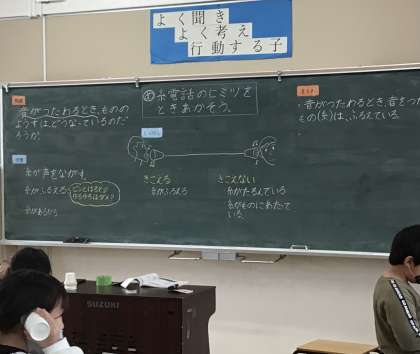 よく聞き
よく考え
行動する子
問題
音がつたわるとき、ものの
ようすは、どうなっているのだ
ろうか。
め 糸電話のヒミツを
ときあかそう。
まとめ
・音がつたわるとき、音をつ
もの(糸)は、ふるえている。
糸が声をながす
糸がふるえる
糸があるから
きこえる
糸がふるえる
きこえない
糸がたるんでいる
糸がものにあたって
いる。
SUZUKI